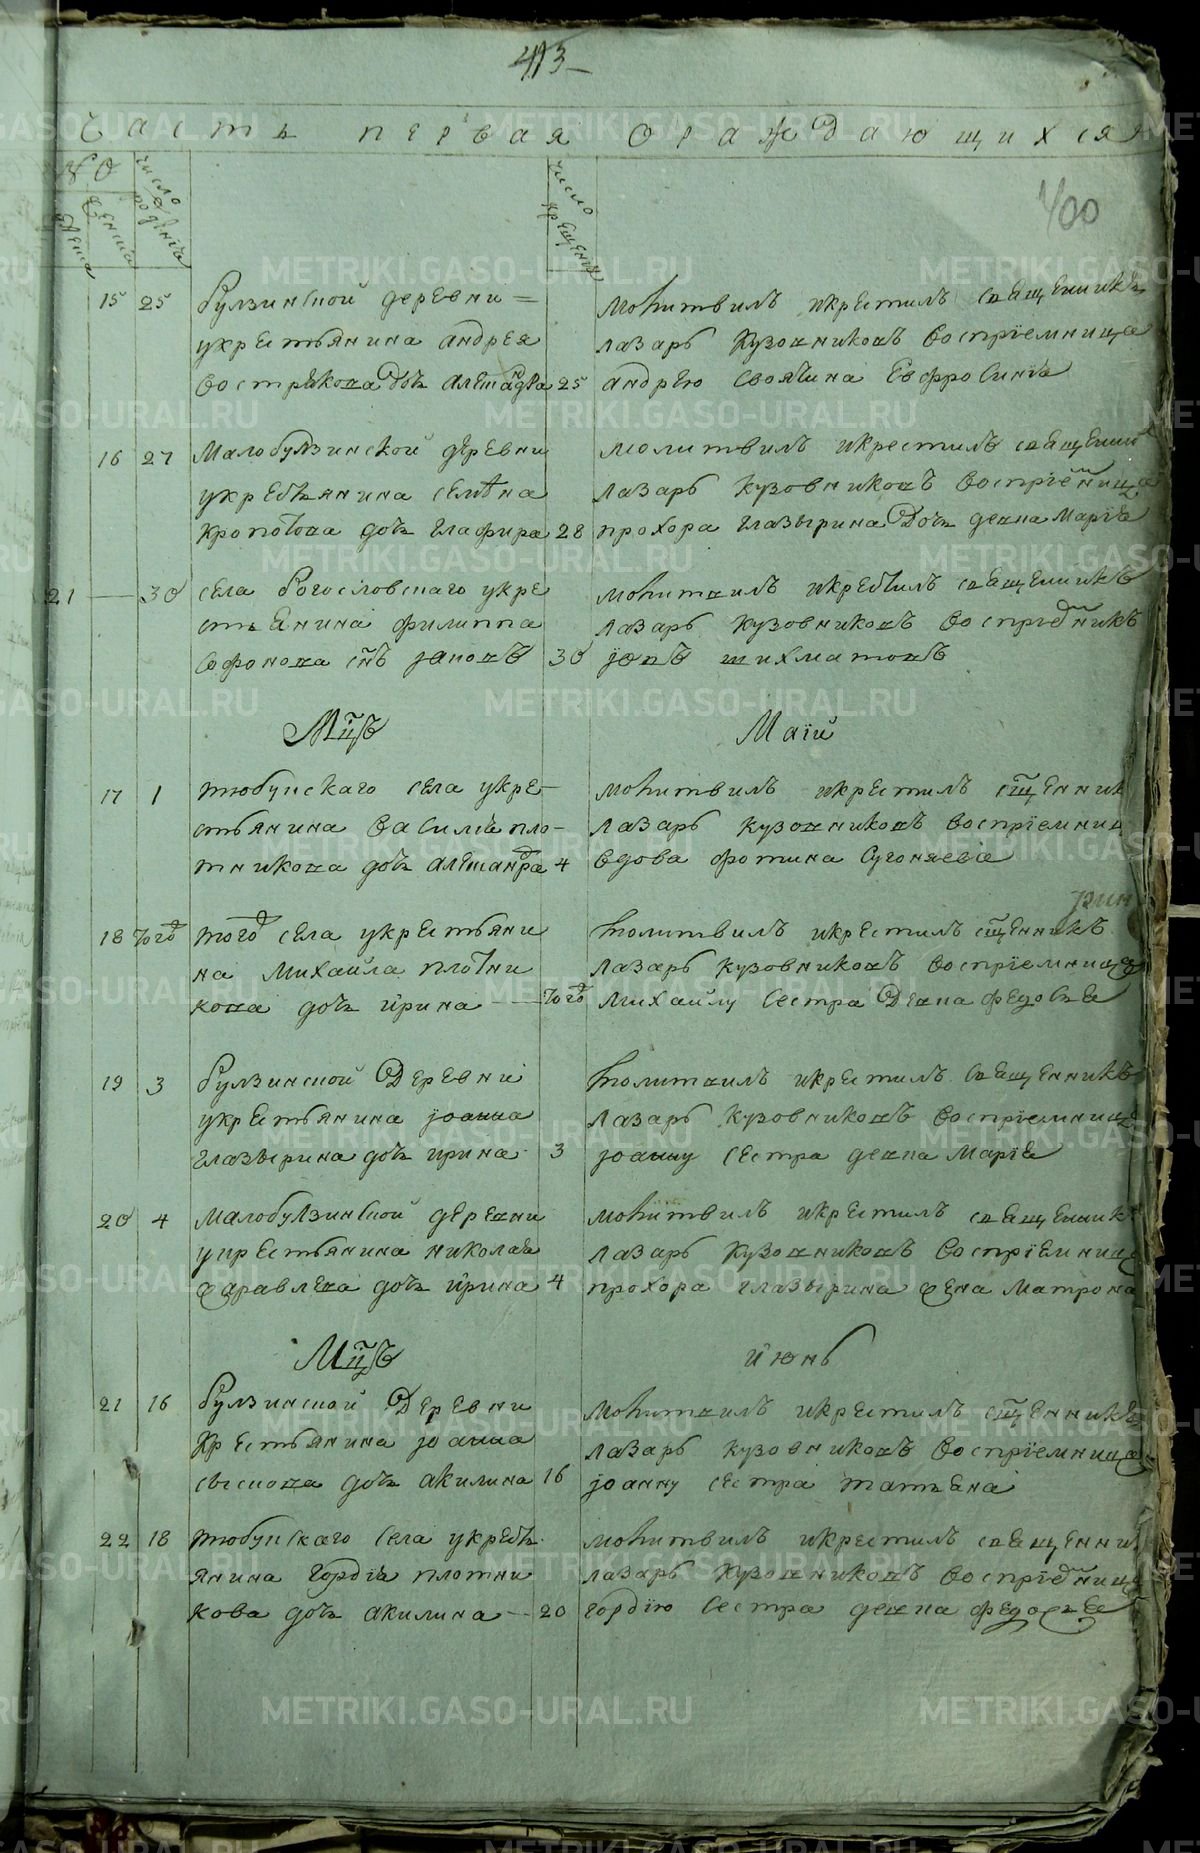 413
Часть первая ораждающихся
400
15 25 булзинской деревни =
укрестьянина андрея
вострякова Дочь алеѯандра 25
молитвилъ икрестилъ священникъ
лазарь Кузовниковъ восприемница
андрею своячина Евфросиніа
16 27 Малобулзинской деревни
укрестьянина семена
кропотова дочь глафира 28
молитвилъ икрестилъ священникъ
лазарь кузовниковъ восприемница
прохора глазырина Дочь девка Маріа
21 — 30 села богословскаго укре
стьянина филиппа
софонова сн҃ъ
молитвилъ икрестилъ священникъ
лазарь кузовниковъ восприемникъ
30 шихматовъ
Мц҃ъ Маій
17 1 тюбукскаго села укре-
стьянина василіа пло-
тникова дочь алеѯандра 4
молитвилъ икрестилъ сщ҃енникъ
лазарь кузовниковъ восприемница
вдова фотина
18 того того села укрестьяни
на михаила плотни
кова дочь ирина — того
молитвилъ икрестилъ сщ҃енникъ
лазарь кузовниковъ восприемница
михаилу сестра Девка федосьа
19 3 булзинской Деревни
укрестьянина іоанна
глазырина дочь ирина 3
молитвилъ икрестилъ священникъ
лазарь кузовниковъ восприемница
іоанну сестра девка Маріа
20 4 малобулзинской деревни
укрестьянина николаа
журавлева дочь ирина 4
молитвилъ икрестилъ священникъ
лазарь кузовниковъ восприемница
прохора глазырина жена матрона
Мц҃ъ июнь
21 16 булзинской Деревни
крестьянина іоанна
сыскова дочь акилина 16
молитвилъ икрестилъ сщ҃енникъ
лазарь кузовниковъ восприемница
іоанну сестра татьана
22 18 тюбукскаго села укресть
янина гордіа плотни
кова дочь акилина — 20
молитвилъ икрестилъ священникъ
лазарь кузовниковъ восприемница
гордію сестра девка федосьа
METRIKI.GASO-URAL.RU